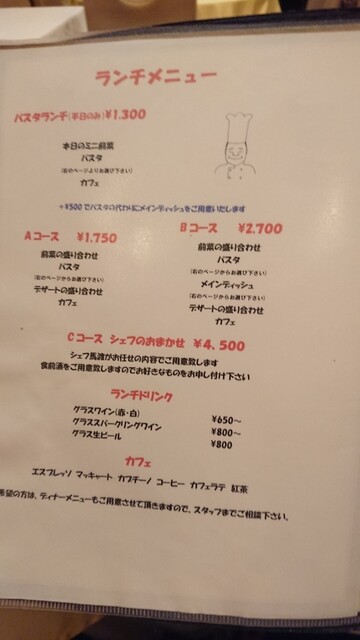 ランチメニュー
パスタランチ(平日のみ)¥1.300
本日のミニ前菜
パスタ
(右のページよりお選び下さい)
カフェ
+¥500でパスタの代わりにメインディッシュをご用意いたします
Aコース ¥1.750
前菜の盛り合わせ
パスタ
(右のページからお選び下さい)
デザートの盛り合わせ
カフェ
Bコース ¥2.700
前菜の盛り合わせ
パスタ
(右のページからお選び下さい)
メインディッシュ
(右のページからお選び下さい)
デザートの盛り合わせ
カフェ
Cコース シェフのおまかせ ¥4,500
シェフ馬渡がお任せの内容でご用意致します
食前酒をご用意致しますのでお好きなものをお申し付け下さい
ランチドリンク
グラスワイン(赤・白) ¥650～
グラススパークリングワイン ¥800～
グラス生ビール ¥800
カフェ
エスプレッソ マッキャート カプチーノ コーヒー カフェラテ 紅茶
希望の方は、ディナーメニューもご用意させて頂きますので、スタッフまでご相談下さい。